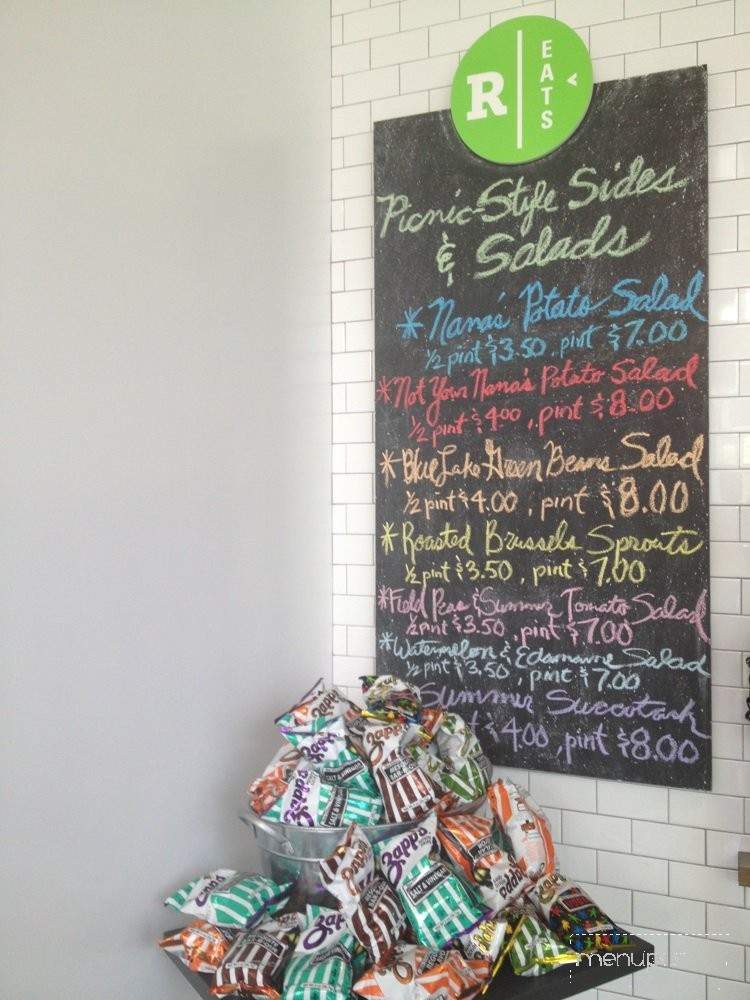 R
EATS
Picnic-Style Sides
& Salads
* Nana's Potato Salad
1/2 pint $3.50, pint $7.00
* Not Your Nana's Potato Salad
1/2 pint $4.00, pint $8.00
* Blue Lake Green Beans Salad
1/2 pint $4.00, pint $8.00
* Roasted Brussels Sprouts
1/2 pint $3.50, pint $7.00
* Field Peas & Summer Tomato Salad
1/2 pint $3.50, pint $7.00
* Watermelon & Edamame Salad
1/2 pint $3.50, pint $7.00
Summer Succotash
$4.00, pint $8.00
Zapp's
Zapp's
Zapp's
SALT & VINEGAR
Zapp's
Zapp's
SALT & VINEGAR
Zapp's
menu